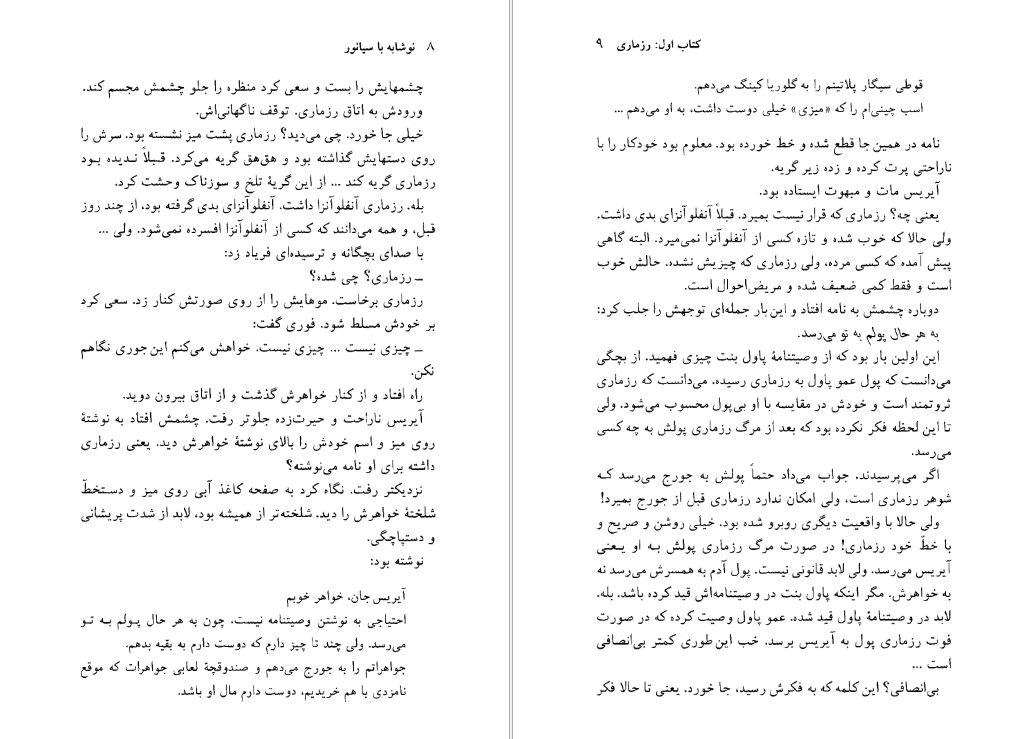 ۸ نوشابه با سیانور
چشمهایش را بست و سعی کرد منظره را جلو چشمش مجسم کند.
ورودش به اتاق رزماری. توقف ناگهانی‌اش.
خیلی جا خورد. چی می‌دید؟ رزماری پشت میز نشسته بود. سرش را
روی دستهایش گذاشته بود و هق‌هق گریه می‌کرد. قبلاً ندیده بود
رزماری گریه کند ... از این گریهٔ تلخ و سوزناک وحشت کرد.
بله. رزماری آنفلوآنزا داشت. آنفلوآنزای بدی گرفته بود، از چند روز
قبل، و همه می‌دانند که کسی از آنفلوآنزا افسرده نمی‌شود. ولی ...
با صدای بچگانه و ترسیده‌ای فریاد زد:
ـ رزماری؟ چی شده؟
رزماری برخاست. موهایش را از روی صورتش کنار زد. سعی کرد
بر خودش مسلط شود. فوری گفت:
ـ چیزی نیست ... چیزی نیست. خواهش می‌کنم این جوری نگاهم
نکن.
راه افتاد و از کنار خواهرش گذشت و از اتاق بیرون دوید.
آیریس ناراحت و حیرت‌زده جلوتر رفت. چشمش افتاد به نوشتهٔ
روی میز و اسم خودش را بالای نوشتهٔ خواهرش دید. یعنی رزماری
داشته برای او نامه می‌نوشته؟
نزدیکتر رفت. نگاه کرد به صفحه کاغذ آبی روی میز و دستخطّ
شلختهٔ خواهرش را دید. شلخته‌تر از همیشه بود، لابد از شدت پریشانی
و دستپاچگی.
نوشته بود:
آیریس جان، خواهر خوبم
احتیاجی به نوشتن وصیتنامه نیست، چون به هر حال پولم به تو
می‌رسد. ولی چند تا چیز دارم که دوست دارم به بقیه بدهم.
جواهراتم را به جورج می‌دهم و صندوقچهٔ لعابی جواهرات که موقع
نامزدی با هم خریدیم، دوست دارم مال او باشد.
کتاب اول: رزماری ۹
قوطی سیگار پلاتینم را به گلوریا کینگ می‌دهم.
اسب چینی‌ام را که «میزی» خیلی دوست داشت، به او می‌دهم ...
نامه در همین جا قطع شده و خط خورده بود. معلوم بود خودکار را با
ناراحتی پرت کرده و زده زیر گریه.
آیریس مات و مبهوت ایستاده بود.
یعنی چه؟ رزماری که قرار نیست بمیرد. قبلاً آنفلوآنزای بدی داشت.
ولی حالا که خوب شده و تازه کسی از آنفلوآنزا نمی‌میرد. البته گاهی
پیش آمده که کسی مرده، ولی رزماری که چیزیش نشده. حالش خوب
است و فقط کمی ضعیف شده و مریض‌احوال است.
دوباره چشمش به نامه افتاد و این بار جمله‌ای توجهش را جلب کرد:
به هر حال پولم به تو می‌رسد.
این اولین بار بود که از وصیتنامهٔ پاول بنت چیزی فهمید. از بچگی
می‌دانست که پول عمو پاول به رزماری رسیده. می‌دانست که رزماری
ثروتمند است و خودش در مقایسه با او بی‌پول محسوب می‌شود. ولی
تا این لحظه فکر نکرده بود که بعد از مرگ رزماری پولش به چه کسی
می‌رسد.
اگر می‌پرسیدند. جواب می‌داد حتماً پولش به جورج می‌رسد که
شوهر رزماری است، ولی امکان ندارد رزماری قبل از جورج بمیرد!
ولی حالا با واقعیت دیگری روبرو شده بود. خیلی روشن و صریح و
با خطّ خود رزماری! در صورت مرگ رزماری پولش به او یعنی
آیریس می‌رسد. ولی لابد قانونی نیست. پول آدم به همسرش می‌رسد نه
به خواهرش. مگر اینکه پاول بنت در وصیتنامه‌اش قید کرده باشد. بله.
لابد در وصیتنامهٔ پاول قید شده. عمو پاول وصیت کرده که در صورت
فوت رزماری پول به آیریس برسد. خب این طوری کمتر بی‌انصافی
است ...
بی‌انصافی؟ این کلمه که به فکرش رسید، جا خورد. یعنی تا حالا فکر